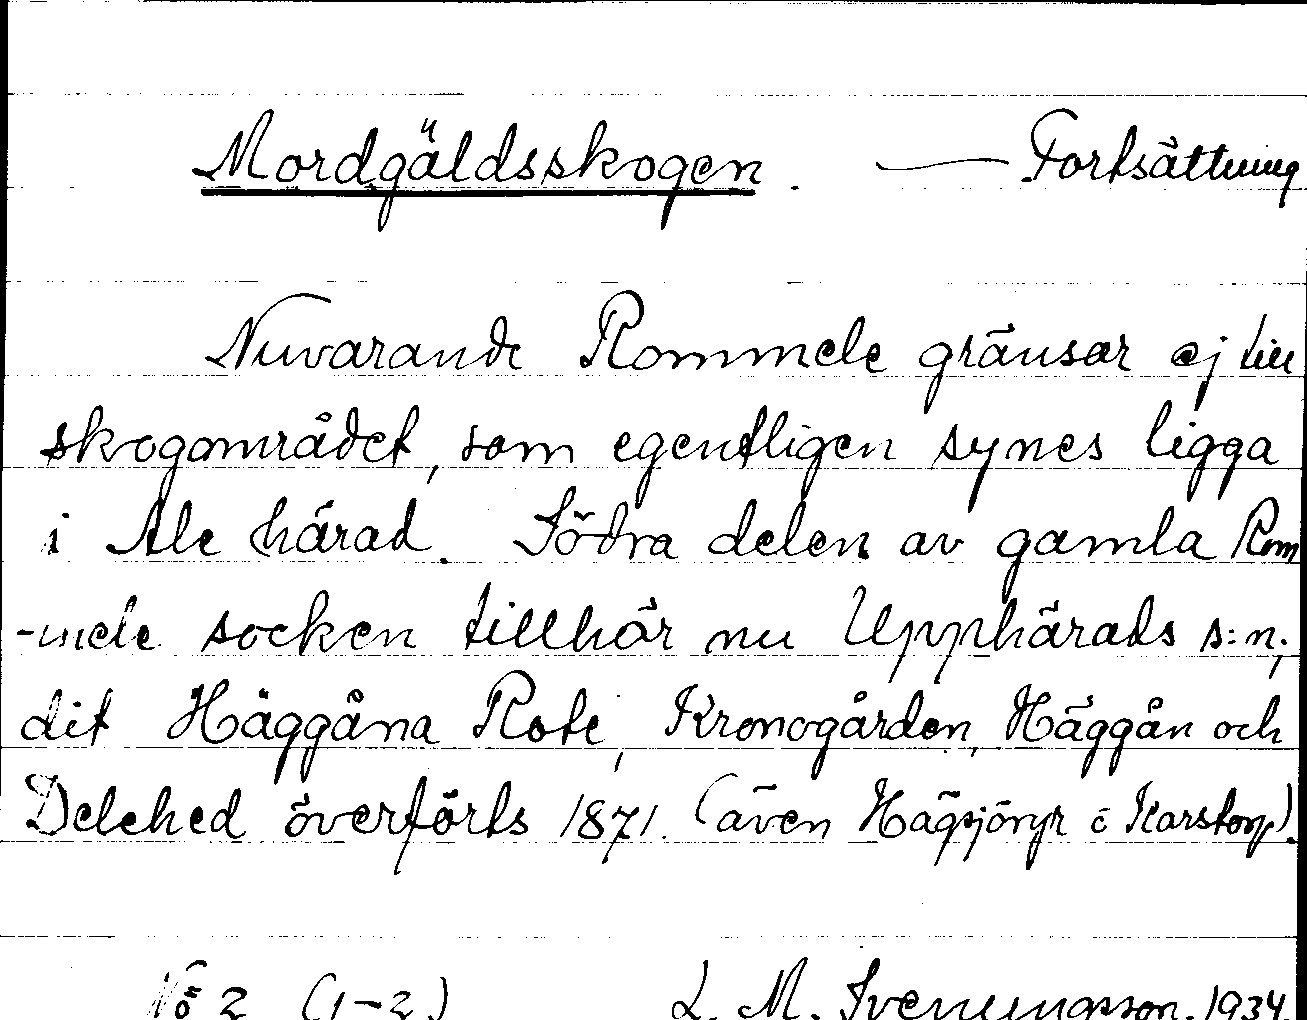 Mordgäldsskogen. — Fortsättning
Nuvarande Rommele gränsar ej till
skogområdet, som egentligen synes ligga
i Ale härad. Södra delen av gamla Rom
-mele socken tillhör nu Upphärads s:n,
dit Häggåna Rote, Kronogården, Häggån och
Delehed överförts 1871. (även Hägsjöryr o Karstorp).
No 2 (1-2) L. M. Svenungsson. 1934.